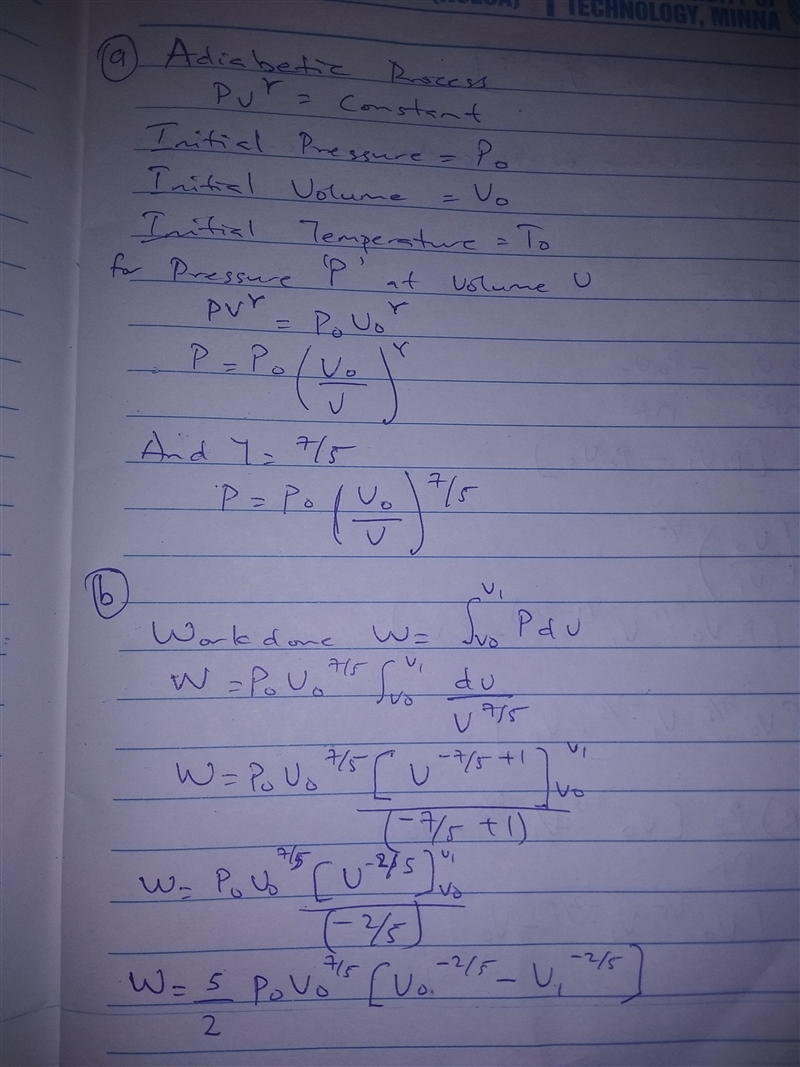 TECHNOLOGY, MINNA
(a) Adiabetic Process
PV^γ = Constant
Initial Pressure = P₀
Initial Volume = V₀
Initial Temperature = T₀
for Pressure 'P' at volume V
PV^γ = P₀V₀^γ
P = P₀ (V₀/V)^γ
And γ = 7/5
P = P₀ (V₀/V)^7/5
(b)
Work done W = ∫_V₀^V₁ P dV
W = P₀V₀^7/5 ∫_V₀^V₁ dV/V^7/5
W = P₀V₀^7/5 [V^-7/5 +1]_V₀^V₁ / (-7/5 +1)
W = P₀V₀^7/5 [V^-2/5]_V₀^V₁ / (-2/5)
W = 5/2 P₀V₀^7/5 [V₀^-2/5 - V₁^-2/5]